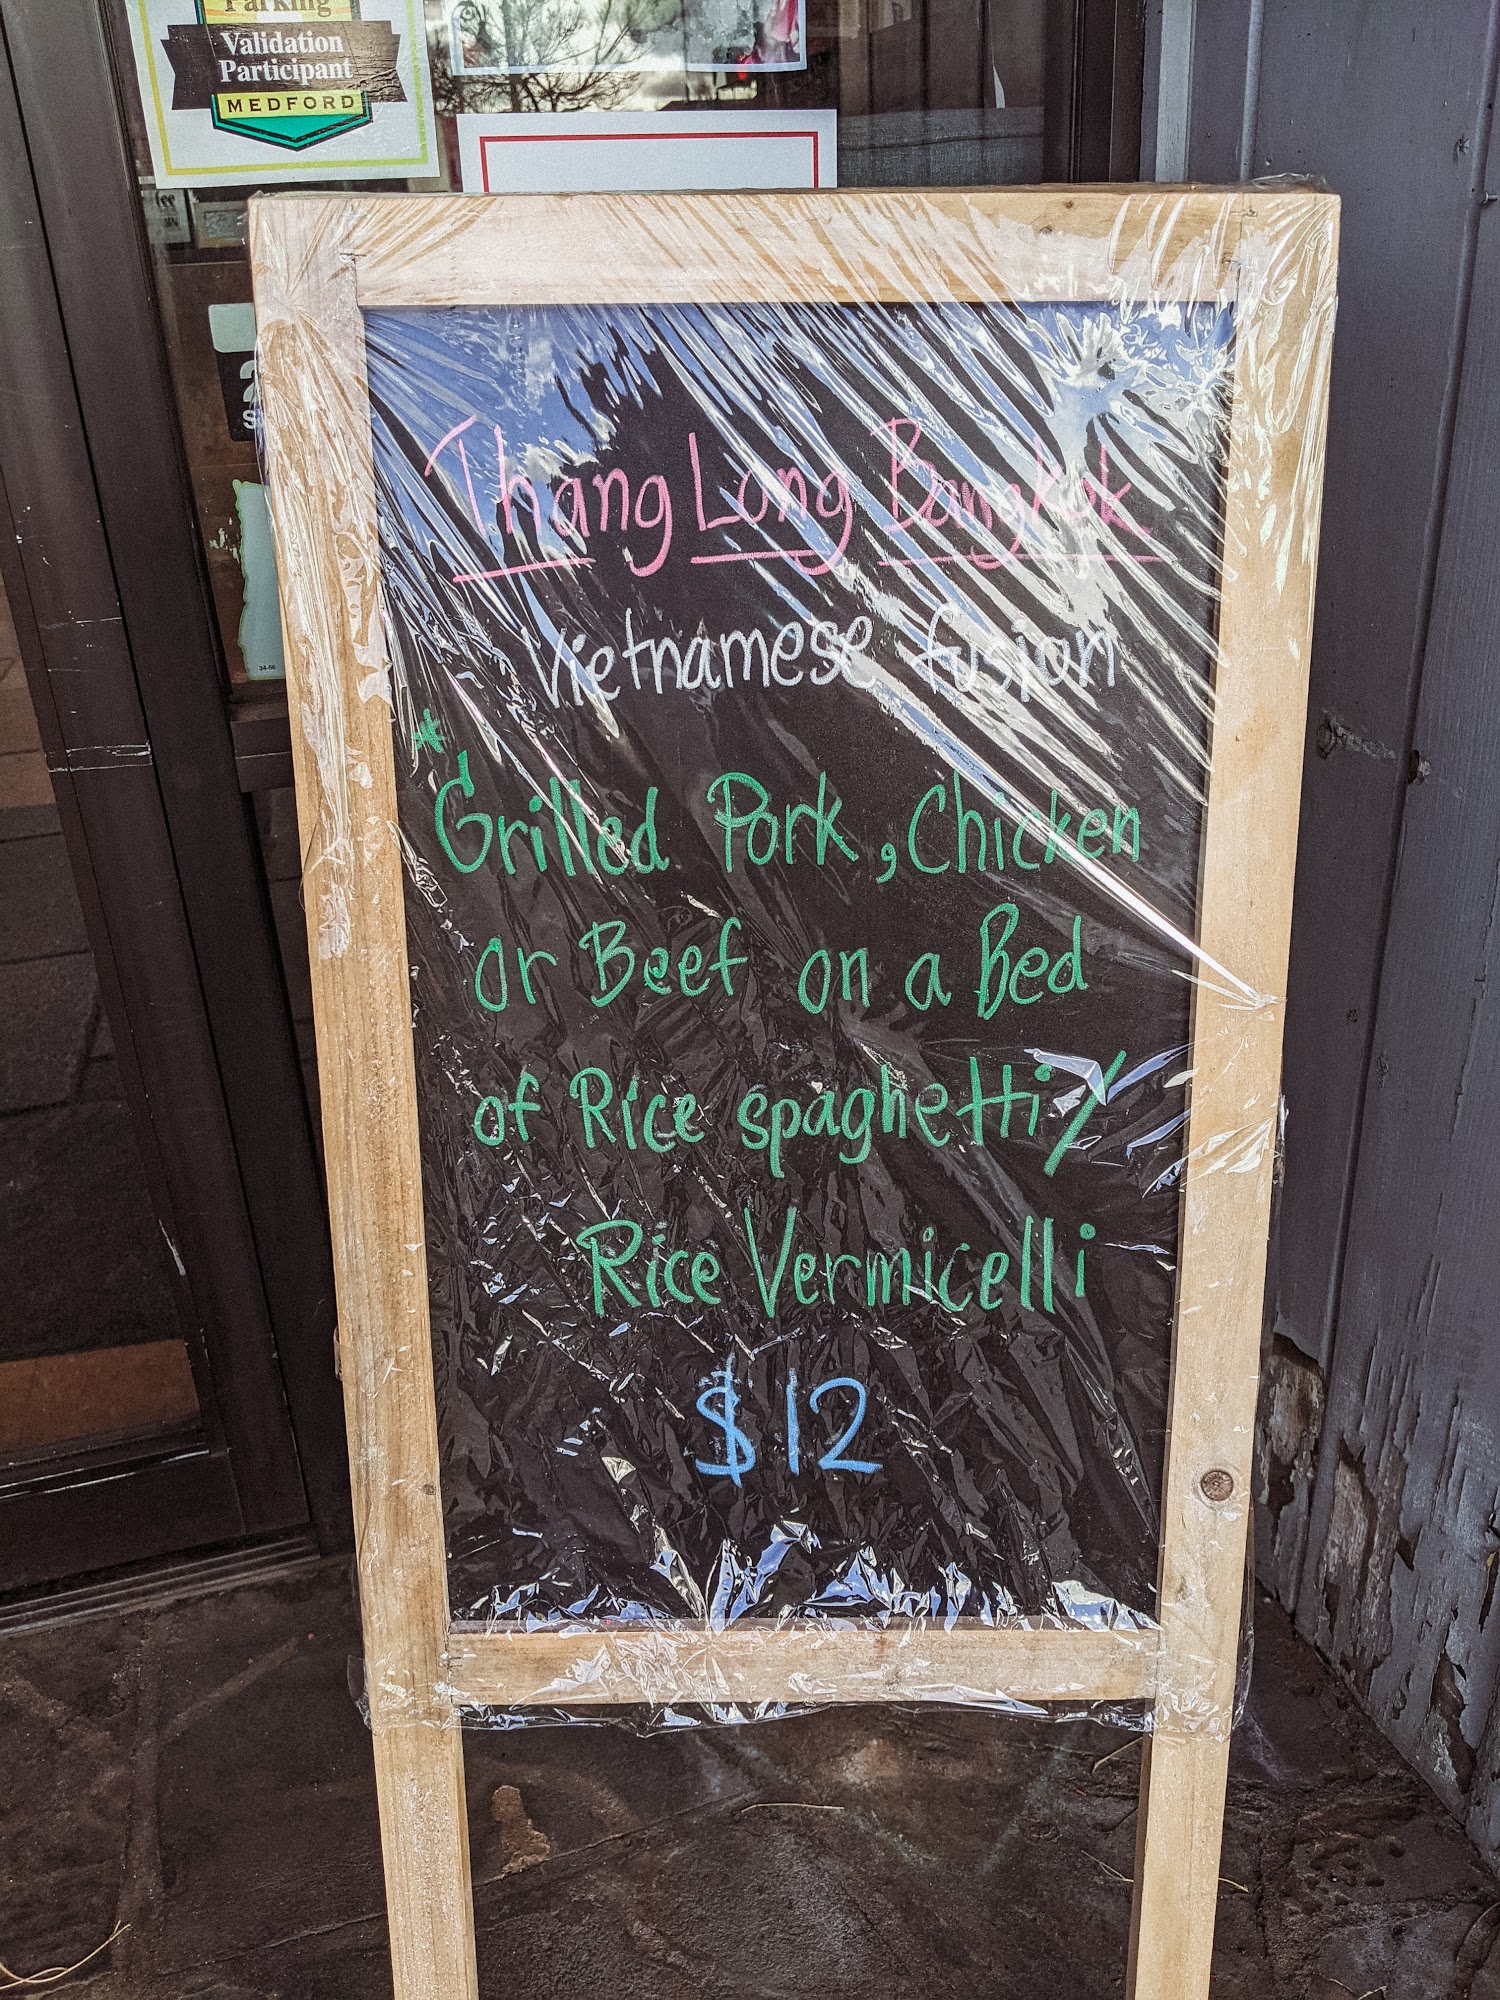 Parking
Validation
Participant
MEDFORD
34-56
Thang Long Bangkok
Vietnamese fusion
*
Grilled Pork, Chicken
or Beef on a Bed
of Rice spaghetti/
Rice Vermicelli
$12